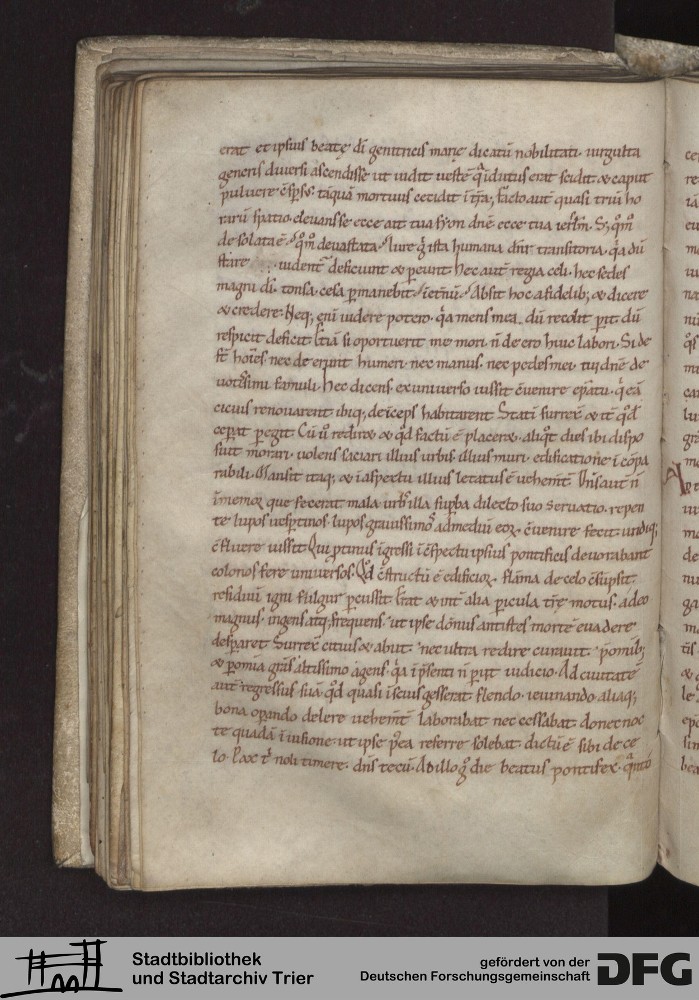 erat et ipsius beatę di genitricis marię dicatū nobilitati. uirgulta
generis diuersi ascendisse ut uidit uestē q̇ īdutus erat scidit & caput
puluere c̄sꝑsꝰ tāquā mortuus cecidit ī t̄ra. facto aut̄ quasi triū ho
rarū spatio. eleuansse ecce ait tua syon dn̄e ecce tua ierlm̄. q̄m
desolata ē. q̄m deuastata. iure g̊ ista humana transitoria. q̇a dū
uident̄ deficiunt & pereunt. hec aut̄ regia celi. hec sedes
magni di. tonsa. celsa ꝑmanebit īet̄nū. Absit hoc a fidelib; & dicere
& credere. Neq; eni uidere potero. q̇a mens mea dū recolit ꝑit. dū
respicit deficit. etiā si oportuerit me mori n̄ desero huic labori. Si de
st̄ hoīes nec deerunt humeri. nec manus. nec pedes mei. tui dn̄e de
uotissimi famuli. hec dicens. ex uniuerso iussit c̄uenire epatu. q̇ eā
cicius renouarent ibiq; deīceps habitarent. Statī surrex̄ & q̊d
ceperat ꝑegit. Cū ū redire & q̊d factū ē placere. aliq̊t dies ibi dispo
suit morari. uolens saciari illius urbis. illius muri. edificatione ī cōpa
rabili. Mansit itaq; & ī aspectu illius letatus ē uehem̄t.
īmemor que fecerat mala urbs illa suꝑba dilecto suo Seruatio. repen
te lupos uespertinos. lupos grauissimos admediū eoꝝ c̄uenire fecit. undiq;
c̄fluere iussit. Qui ꝓtinus īgressi ī c̄spectu ipsius pontificis deuorabant
colonos fere uniuersos. Q̊d c̄structū ē edificioꝝ flāma de celo c̄sūpsit.
residuū igni fulgur ꝑcussit. Erat & int̄ alia pericula t̄rę motus. adeo
magnus. ingens atq; frequens. ut ipse dōnus antistes mortē euadere
despraret. Surrex̄ citius & abiit. nec ultra redire curauit. ꝓ omīb;
& ꝑ omia gr̄as altissimo agens. q̇a ī p̄senti n̄ periit iudicio. Ad ciuitatē
aut̄ regressus suā. q̊d quasi ī seuis gesserat flendo. ieiunando aliaq;
bona oꝑando delere uehem̄t laborabat. nec cessabat. donec noc
te quadā ī uisione. ut ipse p̊ea referre solebat. dictū ē sibi de ce
lo. Pax tⁱ noli timere. dn̄s tecū. Ab illo g̊ die beatus pontifex.
Stadtbibliothek
und Stadtarchiv Trier
gefördert von der
Deutschen Forschungsgemeinschaft
DFG